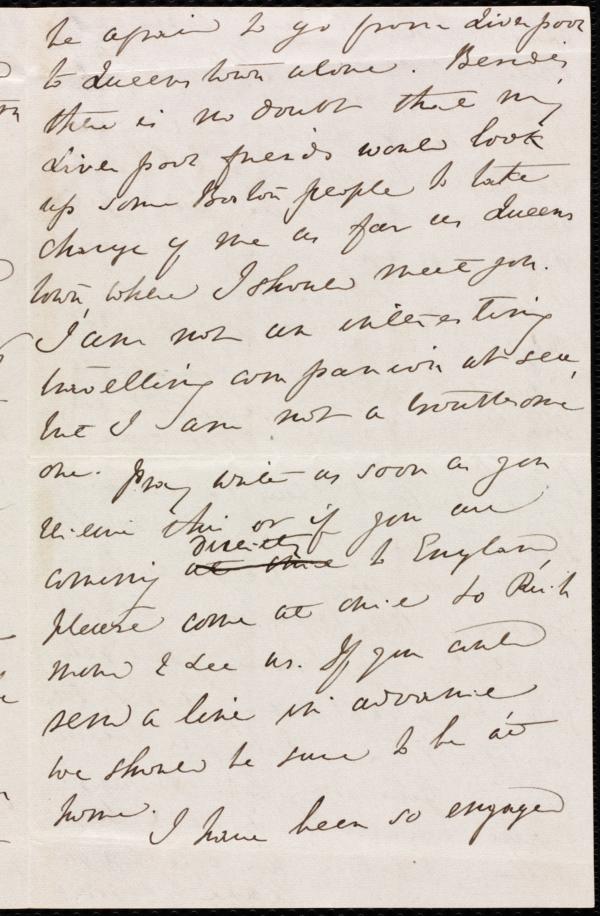 be afraid to go from Liverpool
to Queenstown alone. Besides
there is no doubt that my
Liverpool friends would look
up some Boston people to take
charge of me as far as Queens
town, where I should meet you.
I am not an interesting
travelling companion at sea,
but I am not a troublesome
one. Pray write as soon as you
receive this or if you are
directly
coming at once to England,
please come at once to Rich
mond & see us. If you could
send a line in advance
we should be sure to be at
home.
I have been so engaged